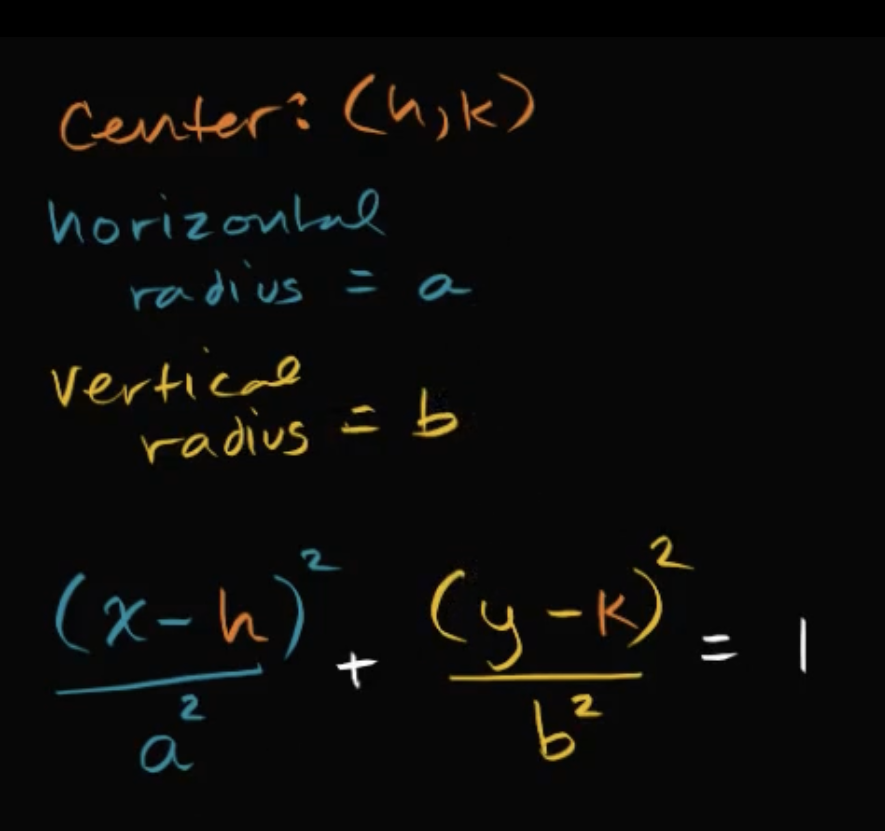 Center: (h,k)
horizontal
radius = a
vertical
radius = b
(x-h)² + (y-k)² = 1
a² b²